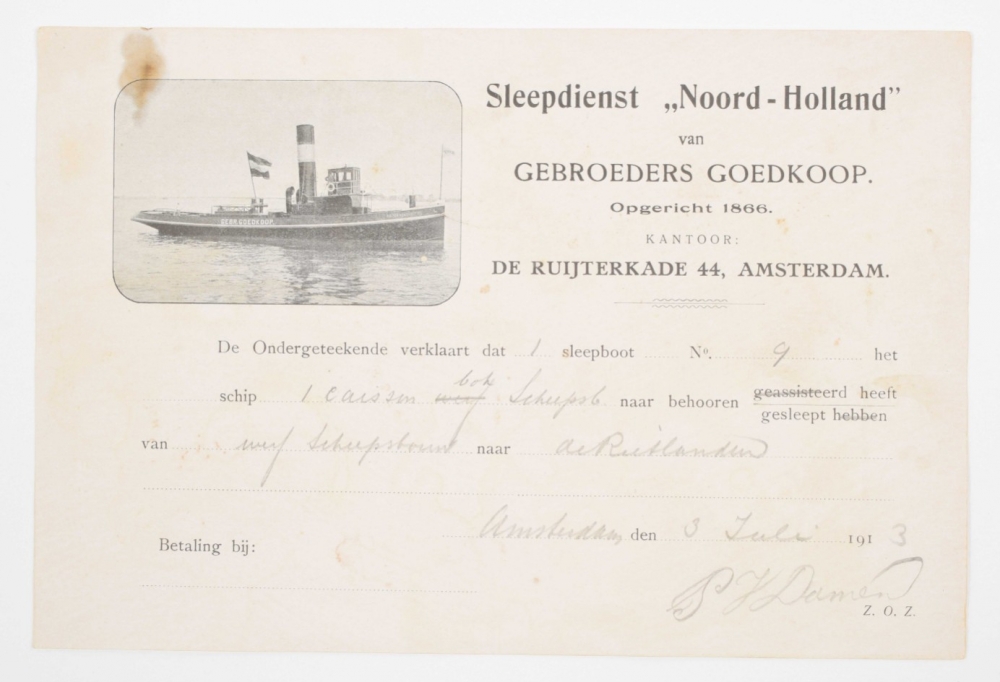 GEBR. GOEDKOOP
Sleepdienst „Noord-Holland”
van
GEBROEDERS GOEDKOOP.
Opgericht 1866.
KANTOOR:
DE RUIJTERKADE 44, AMSTERDAM.
De Ondergeteekende verklaart dat 1 sleepboot No. 9 het
schip 1 caisson werf Scheepsb naar behooren geassisteerd heeft
gesleept hebben
van werf Scheepsbouw naar de Rietlanden
Amsterdam den 3 Juli 1913
Betaling bij:
P V Damen
Z. O. Z.